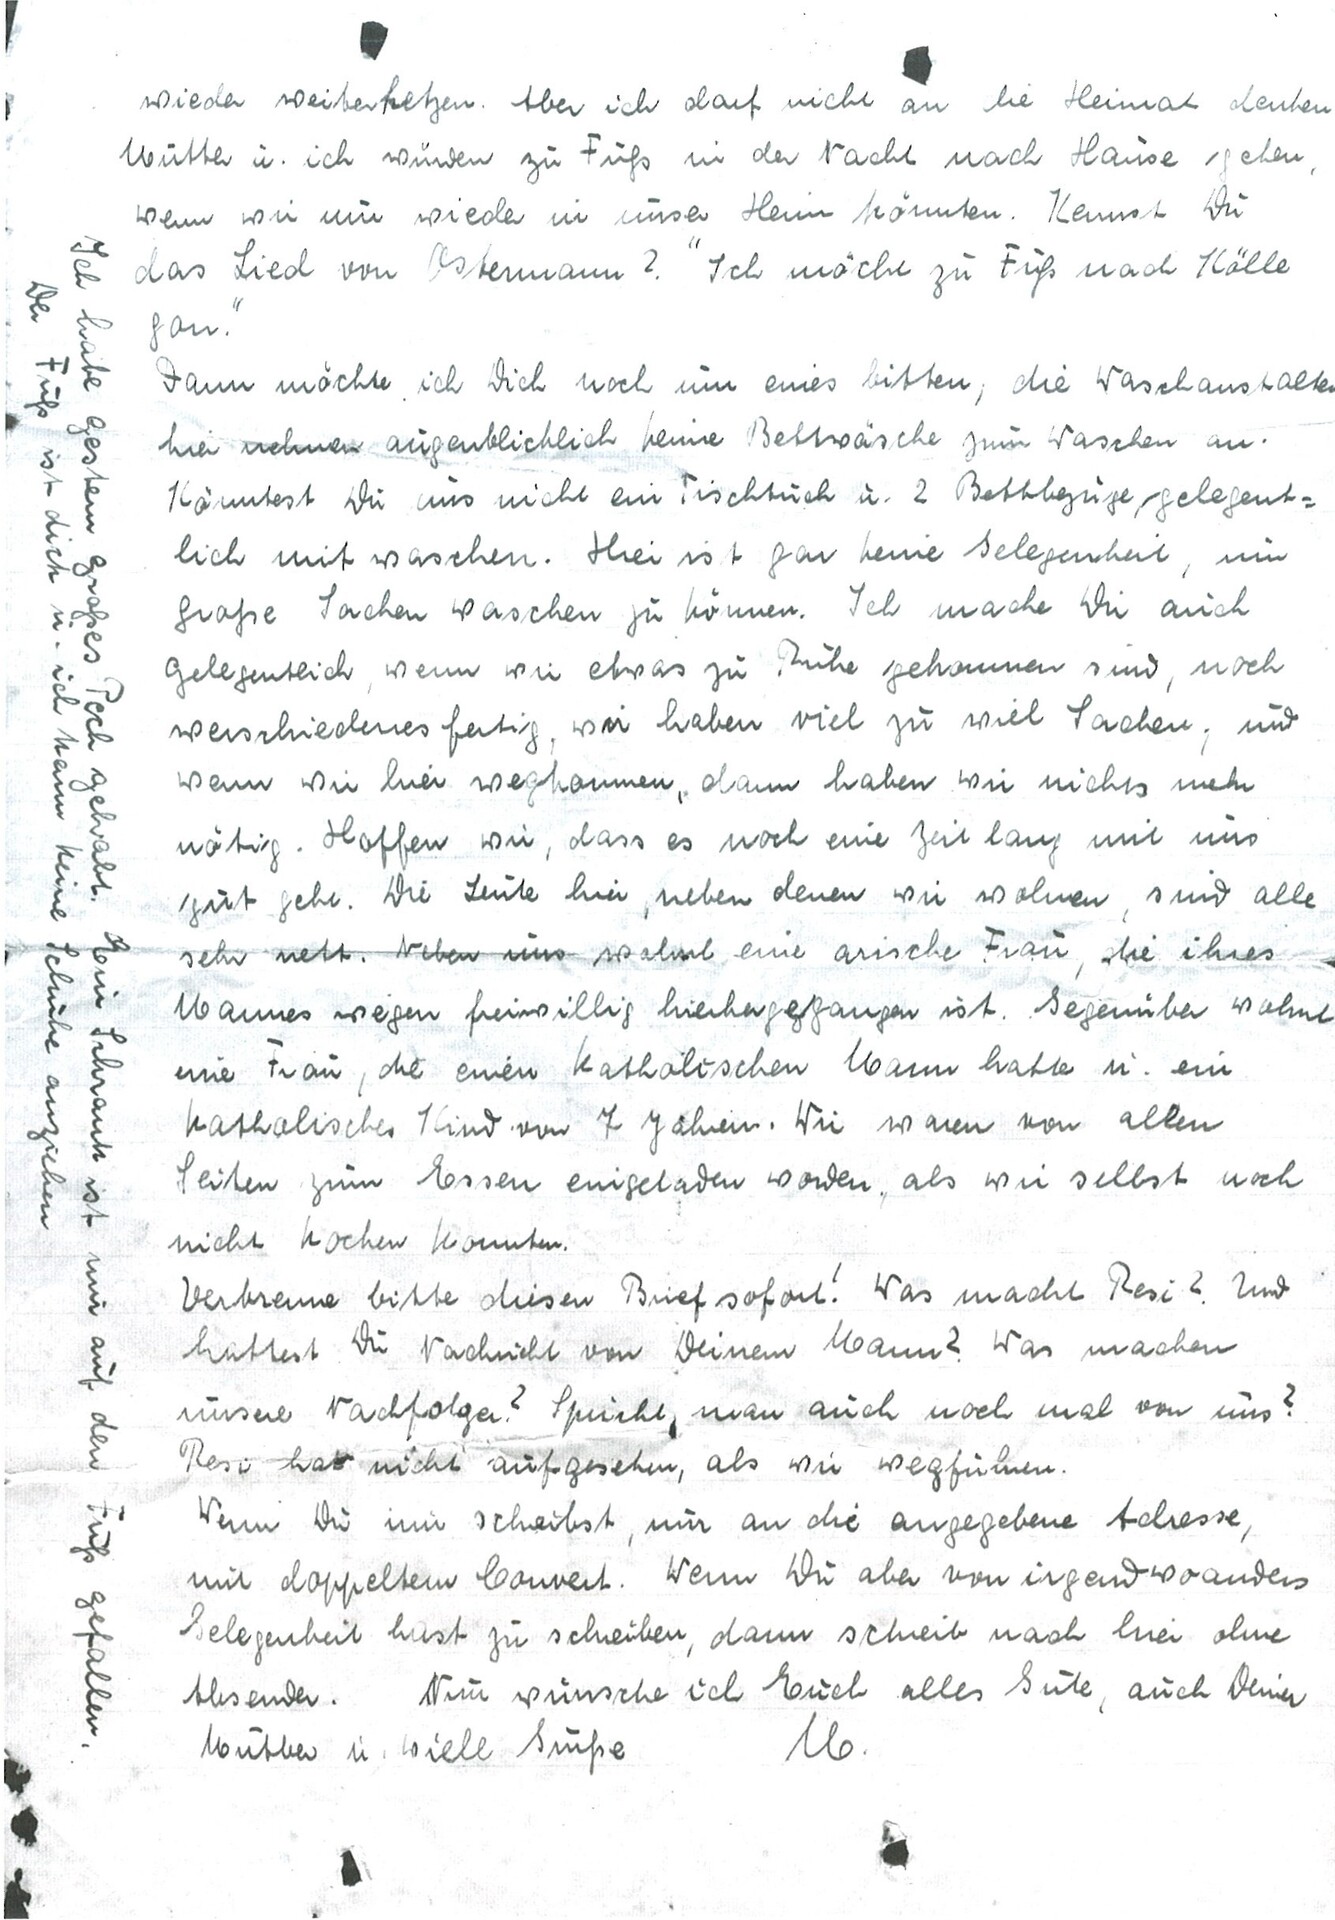 wieder weiterhetzen. Aber ich darf nicht an die Heimat denken
Mutter u. ich würden zu Fuß in der Nacht nach Hause gehen,
wenn wir nur wieder in unser Heim könnten. Kennst Du
das Lied von Ostermann? "Ich möcht zu Fuß nach Kölle
gon."
Dann möchte ich Dich noch um eines bitten, die Waschanstalten
hier nehmen augenblicklich keine Bettwäsche zum Waschen an.
Könntest Du uns nicht ein Tischtuch u. 2 Bettbezüge, gelegent=
lich mit waschen. Hier ist gar keine Gelegenheit, um
große Sachen waschen zu können. Ich mache Dir auch
Gelegentlich, wenn wir etwas zu Ruhe gekommen sind, noch
verschiedenes fertig, wir haben viel zu viel Sachen, und
wenn wir hier wegkommen, dann haben wir nichts mehr
nötig. Hoffen wir, dass es noch eine Zeit lang mit uns
gut geht. Die Leute hier, neben denen wir wohnen, sind alle
sehr nett. Neben uns wohnt eine arische Frau, die ihres
Mannes wegen freiwillig hierhergegangen ist. Gegenüber wohnt
eine Frau, die einen katholischen Mann hatte u. ein
katholisches Kind von 7 Jahren. Wir waren von allen
Seiten zum Essen eingeladen worden, als wir selbst noch
nicht kochen konnten.
Verbrenne bitte diesen Brief sofort! Was macht Resi? Und
hattest Du Nachricht von Deinem Mann? Was machen
unsere Nachfolger? Spricht man auch noch mal von uns?
Resi hat nicht aufgesehen, als wir wegfuhren.
Wenn Du mir schreibst, nur an die angegebene Adresse,
mit doppeltem Couvert. Wenn Du aber von irgendwoanders
Gelegenheit hast zu schreiben, dann schreib nach hier ohne
Absender. Nun wünsche ich Euch alles Gute, auch Deiner
Mutter u. viele Grüße M.
Ich habe gestern großes Pech gehabt. Ein Schrank ist mir auf den Fuß gefallen.
Der Fuß ist dick u. ich kann keine Schuhe anziehen